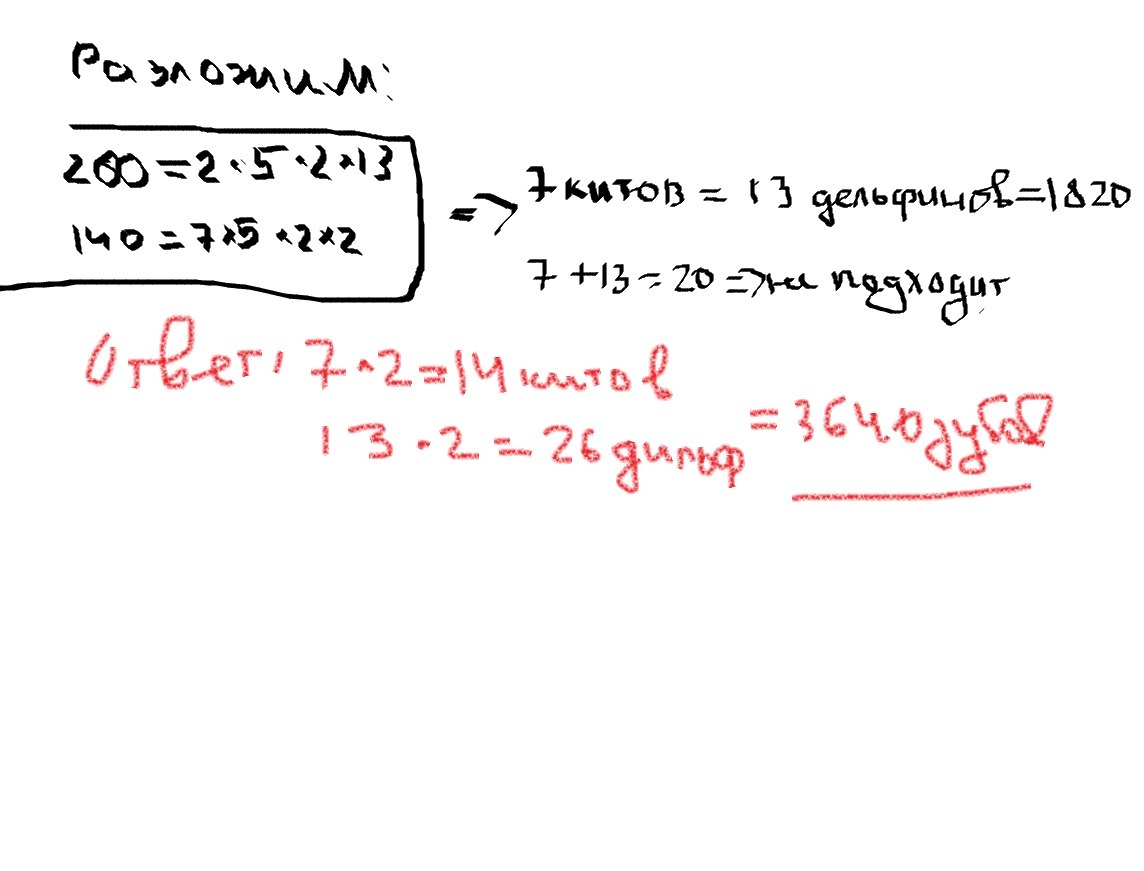 Разложим:
260 = 2 · 5 · 2 · 13
140 = 7 × 5 · 2 × 2
=> 7 китов = 13 дельфинов = 1820
7 + 13 = 20 => не подходит
Ответ: 7 · 2 = 14 китов
13 · 2 = 26 дильф = 3640 зубов